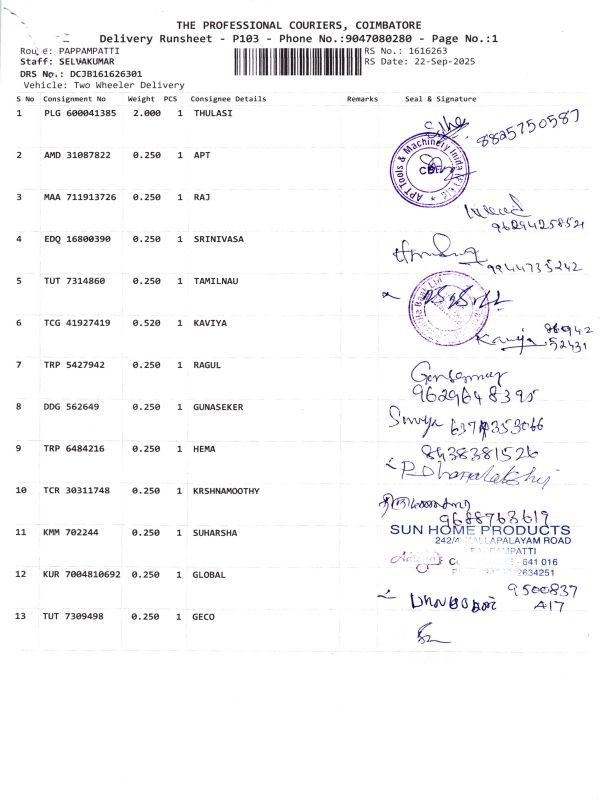 THE PROFESSIONAL COURIERS, COIMBATORE
Delivery Runsheet - P103 - Phone No.:9047080280 - Page No.:1
Route: PAPPAMPATTI
RS No.: 1616263
Staff: SELVAKUMAR
RS Date: 22-Sep-2025
DRS No.: DCJB161626301
Vehicle: Two Wheeler Delivery
S No Consignment No Weight PCS Consignee Details Remarks Seal & Signature
1 PLG 600041385 2.000 1 THULASI
8825750587
2 AMD 31087822 0.250 1 APT
APT Tools & Machinery India (P) Ltd
3 MAA 711913726 0.250 1 RAJ
4 EDQ 16800390 0.250 1 SRINIVASA
9944735242
5 TUT 7314860 0.250 1 TAMILNAU
6 TCG 41927419 0.520 1 KAVIYA
Kaviya
52431
7 TRP 5427942 0.250 1 RAGUL
9629648395
8 DDG 562649 0.250 1 GUNASEKER
Surya
9 TRP 6484216 0.250 1 HEMA
8438381526
P. Dhanalakshmi
10 TCR 30311748 0.250 1 KRSHNAMOOTHY
9688763619
11 KMM 702244 0.250 1 SUHARSHA
SUN HOME PRODUCTS
242/4 ROAD
641 016
2634251
12 KUR 7004810692 0.250 1 GLOBAL
9500837
A17
13 TUT 7309498 0.250 1 GECO